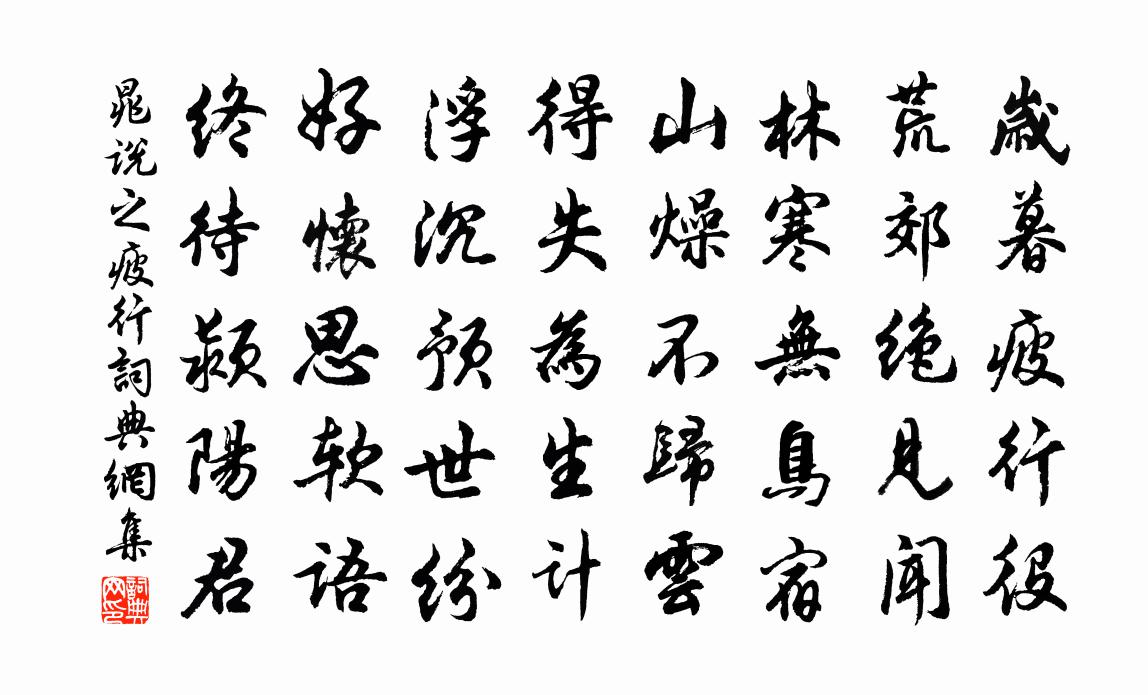 歲暮疲行役
荒郊絶見聞
林寒無鳥宿
山燥不歸雲
得失為生計
浮沉預世紛
好懷思軟語
終待潁陽君
晁說之疲行詞典網集
詞典网印